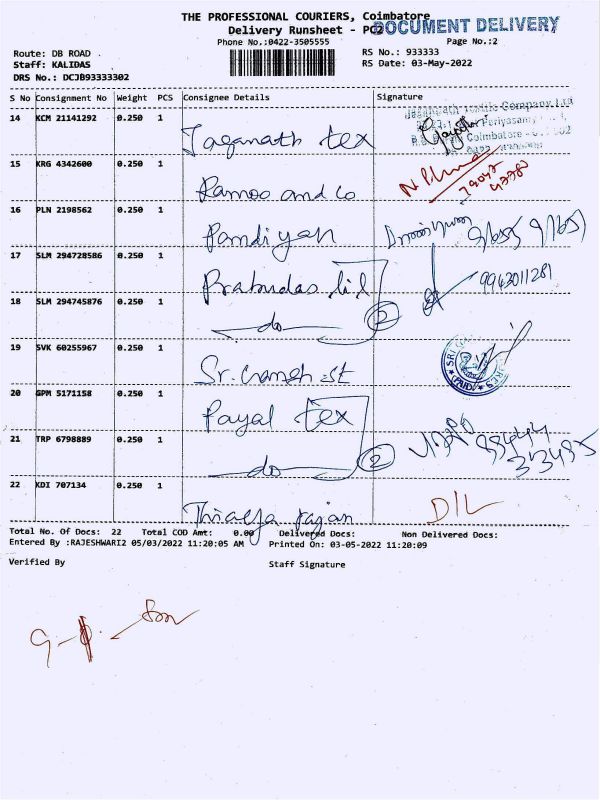 THE PROFESSIONAL COURIERS, Coimbatore
DOCUMENT DELIVERY
Delivery Runsheet -
Phone No.:0422-3505555
Page No.:2
Route: DB ROAD
RS No.: 933333
Staff: KALIDAS
RS Date: 03-May-2022
DRS No.: DCJB93333302
S No Consignment No Weight PCS Consignee Details Signature
14 KCM 21141292 0.250 1
Jaganath tex
Coimbatore
15 KRG 4342600 0.250 1
Ramoo and co
16 PLN 2198562 0.250 1
Pandiyan
17 SLM 294728586 0.250 1
Prabudas
9943011281
18 SLM 294745876 0.250 1
do 2
19 SVK 60255967 0.250 1
Sr. Ganesh st
SRI
20 GPM 5171158 0.250 1
Payal tex
21 TRP 6798889 0.250 1
do 2
22 KDI 707134 0.250 1
rajan
D/L
Total No. Of Docs: 22 Total COD Amt: 0.00 Delivered Docs: Non Delivered Docs:
Entered By :RAJESHWARI2 05/03/2022 11:20:05 AM Printed On: 03-05-2022 11:20:09
Verified By Staff Signature